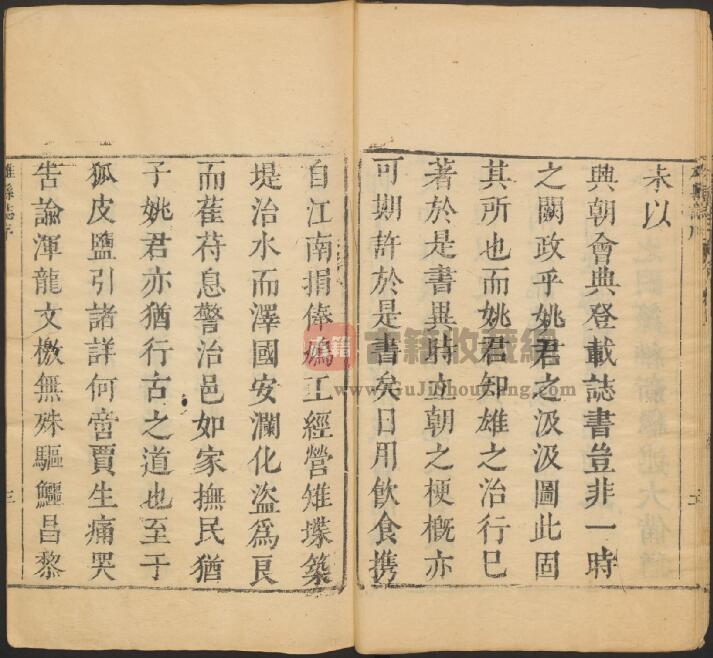 未以
典朝會典登載誌書豈非一時
之闕政乎姚君之汲汲圖此固
其所也而姚君知雄之治行已
著於是書異時立朝之梗概亦
可期許於是書矣日用飲食攜
自江南捐俸鳩工經營雉堞築
堤治水而澤國安瀾化盜爲良
而萑苻息警治邑如家撫民猶
子姚君亦猶行古之道也至于
狐皮鹽引諸詳何啻賈生痛哭
告諭渾龍文檄無殊驅鱷昌黎
雄縣誌序
三
書籍收藏網
www.GuJiShouCang.com